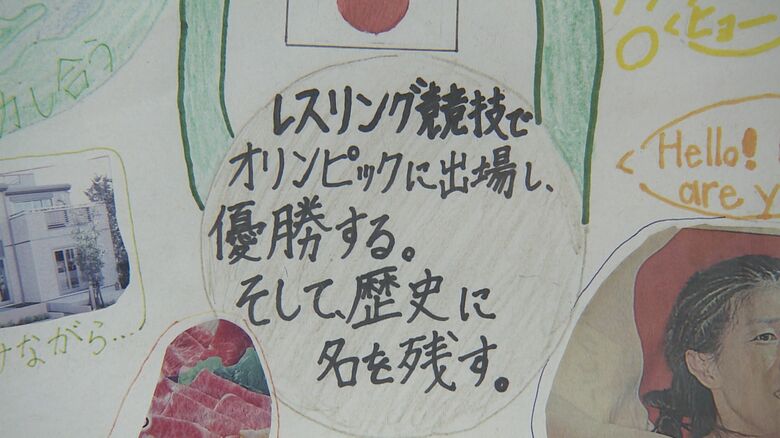 力し合う
レスリング競技で
オリンピックに出場し、
優勝する。
そして、歴史に
名を残す。
ながら…
ヒョー
Hello!
are y